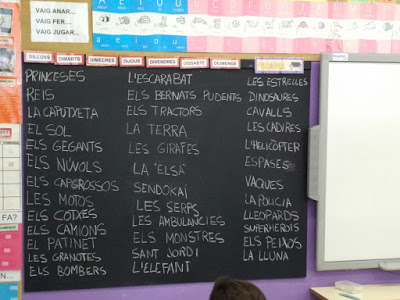 VAIG ANAR...
VAIG FER...
VAIG JUGAR...
DILLUNS
DIMARTS
DIMECRES
DIJOUS
DIVENDRES
DISSABTE
DIUMENGE
PISSARRA
PRINCESES
REIS
LA CAPUTXETA
EL SOL
ELS GEGANTS
ELS NÚVOLS
ELS CAPGROSSOS
LES MOTOS
ELS COTXES
ELS CAMIONS
EL PATINET
LES GRANOTES
ELS BOMBERS
L'ESCARABAT
ELS BERNATS PUDENTS
ELS TRACTORS
LA TERRA
LES GIRAFES
LA "ELSA"
SENDOKAI
LES SERPS
LES AMBULANCIES
ELS MONSTRES
SANT JORDI
L'ELEFANT
LES ESTRELLES
DINOSAURES
CAVALLS
LES CADIRES
L'HELICÒPTER
ESPASES
VAQUES
LA POLICIA
LLEOPARDS
SUPERHEROIS
ELS PEIXOS
LA LLUNA
FA?